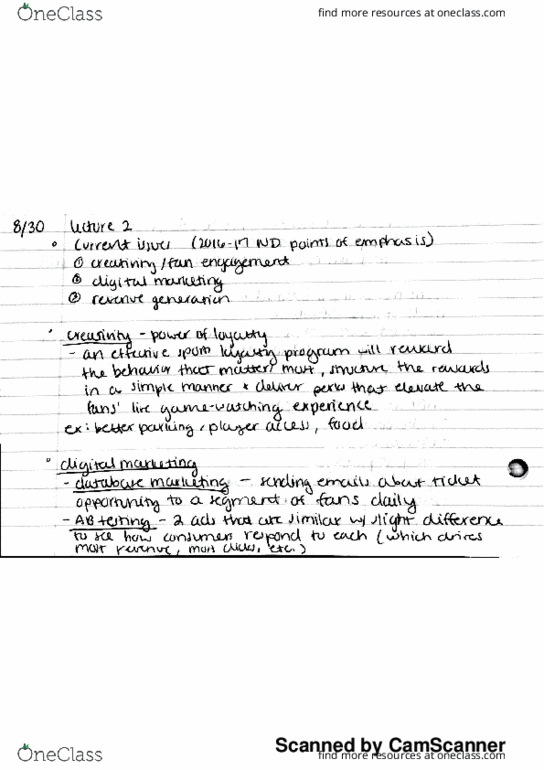 OneClass
find more resources at oneclass.com
8/30 Lecture 2
• Current issues (2016-17 IND points of emphasis)
① creativity/fan engagement
② digital marketing
② revenue generation
• creativity - power of loyalty
- an effective sports loyalty program will reward
the behavior that matters most, structure the rewards
in a simple manner + deliver perks that elevate the
fans' live game-watching experience
ex: better parking, player access, food
• digital marketing
- database marketing - sending emails about ticket
opportunity to a segment of fans daily
- AB testing - 2 ads that are similar w/ slight difference
to see how consumers respond to each (which drives
most revenue, most clicks, etc.)
Scanned by CamScanner
OneClass
find more resources at oneclass.com